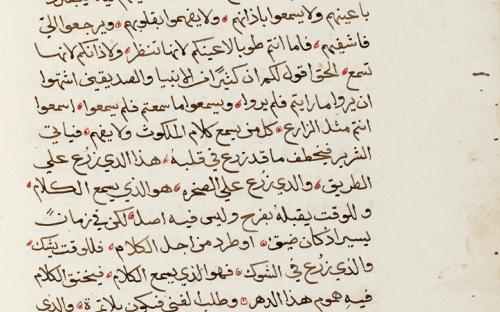 باعينهم ولا يسمعوا باذانهم ولا يفهموا بقلوبهم ويرجعوا الي
فاشفيهم فاما انتم طوبا لاعينكم لانها تنظر ولاذانكم لانها
تسمع الحق اقول لكم ان كثيرا من الانبيا والصديقين اشتهوا
ان يروا ما رايتم فلم يروا ويسمعوا ما سمعتم فلم يسمعوا اسمعوا
انتم مثل الزارع كل من يسمع كلام الملكوت ولا يفهم فياتي
الشرير فيخطف ما قد زرع في قلبه هذا الدي زرع علي
الطريق والدي زرع علي الصخره هو الذي يسمع الكلام
وللوقت يقبله بفرح وليس فيه اصل لكن في زمان
يسير اد كان ضيق او طرد من اجل الكلام فللوقت يشك
والذي زرع في الشوك فهو الذي يسمع الكلام فيخنق الكلام
فيه هموم هذا الدهر وطلب الغني فيكون بلا ثمرة والدي